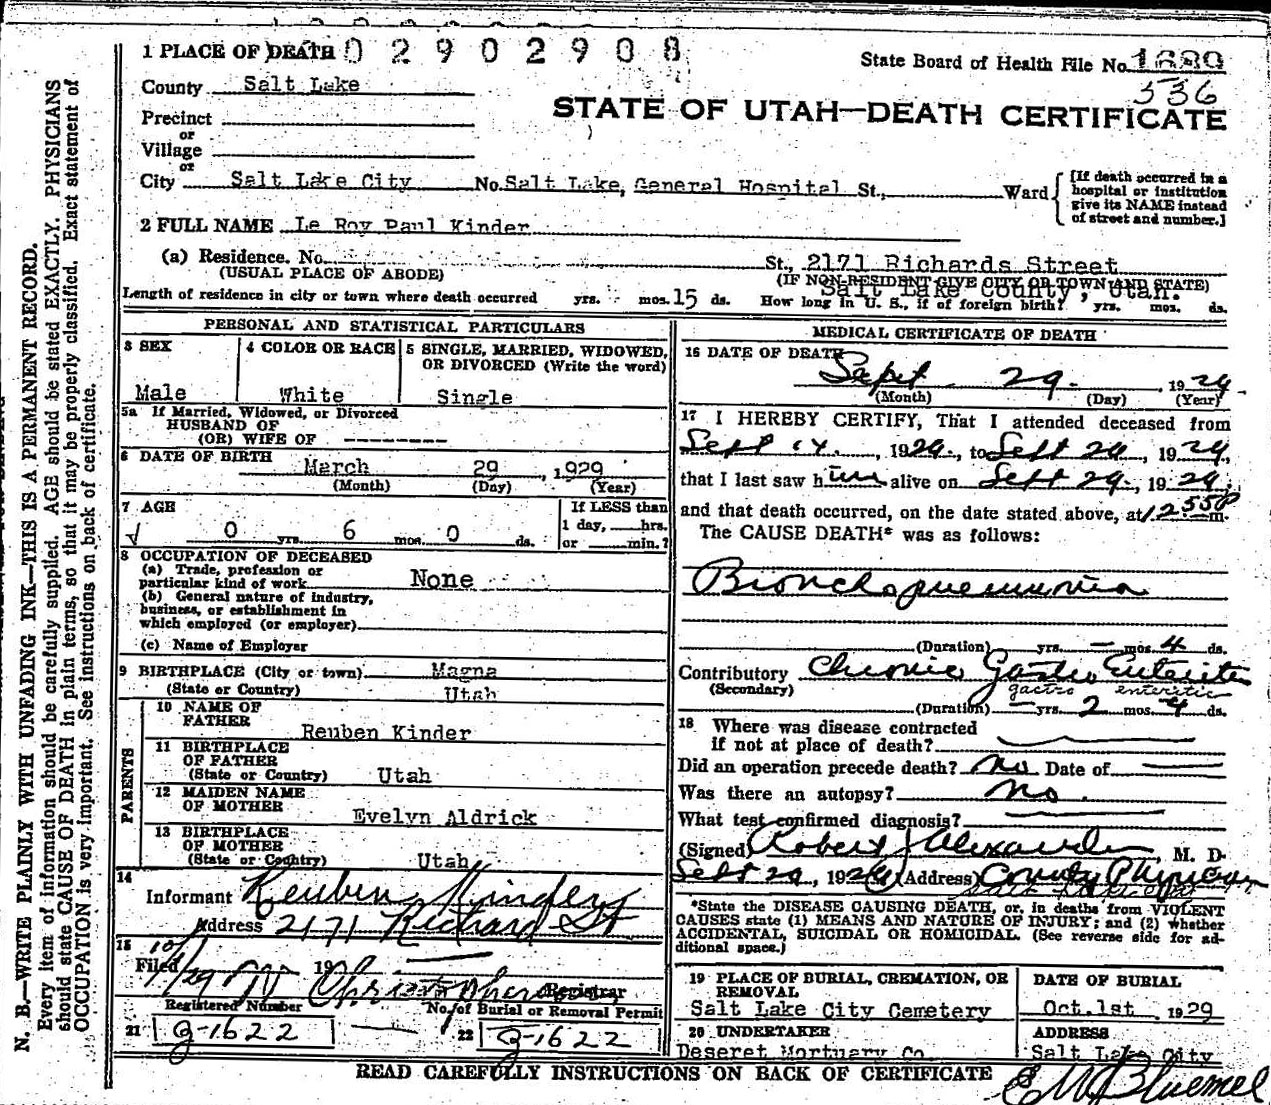 1 PLACE OF DEATH 02902908
State Board of Health File No. 1689
536
County Salt Lake
STATE OF UTAH—DEATH CERTIFICATE
Precinct
or
Village
or
City Salt Lake City No. Salt Lake, General Hospital St., Ward
[If death occurred in a hospital or institution give its NAME instead of street and number.]
2 FULL NAME Le Roy Paul Kinder
(a) Residence. No. St., 2171 Richards Street
(USUAL PLACE OF ABODE) (IF NON-RESIDENT GIVE CITY OR TOWN AND STATE)
Salt Lake County, Utah.
Length of residence in city or town where death occurred yrs. mos. 15 ds. How long in U. S., if of foreign birth? yrs. mos. ds.
PERSONAL AND STATISTICAL PARTICULARS
3 SEX 4 COLOR OR RACE 5 SINGLE, MARRIED, WIDOWED,
OR DIVORCED (Write the word)
Male White Single
5a If Married, Widowed, or Divorced
HUSBAND OF
(OR) WIFE OF --------
6 DATE OF BIRTH
March 29, 1929
(Month) (Day) (Year)
7 AGE If LESS than
1 day, hrs.
0 yrs. 6 mos. 0 ds. or min.?
8 OCCUPATION OF DECEASED
(a) Trade, profession or
particular kind of work None
(b) General nature of industry,
business, or establishment in
which employed (or employer)
(c) Name of Employer
9 BIRTHPLACE (City or town) Magna
(State or Country) Utah
PARENTS
10 NAME OF
FATHER
Reuben Kinder
11 BIRTHPLACE
OF FATHER
(State or Country) Utah
12 MAIDEN NAME
OF MOTHER
Evelyn Aldrick
13 BIRTHPLACE
OF MOTHER
(State or Country) Utah
14
Informant Reuben Kinder
Address 2171 Richard St
15
Filed 10/1/29 19
Registrar
Registered Number No. of Burial or Removal Permit
21 G-1622 22 G-1622
MEDICAL CERTIFICATE OF DEATH
16 DATE OF DEATH
Sept. 29. 1929
(Month) (Day) (Year)
17 I HEREBY CERTIFY, That I attended deceased from
Sept 14., 1929., to Sept 29, 1929,
that I last saw him alive on Sept 29., 1929,
and that death occurred, on the date stated above, at 12.55 P m.
The CAUSE DEATH* was as follows:
Bronchopneumonia
(Duration) yrs. — mos. 4 ds.
Contributory Chronic Gastro Enteritis
(Secondary) gastro enteritis
(Duration) — yrs. 2 mos. 4 ds.
18 Where was disease contracted
if not at place of death?
Did an operation precede death? no Date of
Was there an autopsy? no
What test confirmed diagnosis?
(Signed) Robert J Alexander, M. D.
Sept 29, 1929 (Address) County Physician
*State the DISEASE CAUSING DEATH, or, in deaths from VIOLENT
CAUSES state (1) MEANS AND NATURE OF INJURY; and (2) whether
ACCIDENTAL, SUICIDAL OR HOMICIDAL. (See reverse side for ad-
ditional space.)
19 PLACE OF BURIAL, CREMATION, OR
REMOVAL
Salt Lake City Cemetery
DATE OF BURIAL
Oct. 1st, 1929
20 UNDERTAKER
Deseret Mortuary Co.
ADDRESS
Salt Lake City
READ CAREFULLY INSTRUCTIONS ON BACK OF CERTIFICATE
N. B.—WRITE PLAINLY WITH UNFADING INK—THIS IS A PERMANENT RECORD.
Every item of information should be carefully supplied. AGE should be stated EXACTLY. PHYSICIANS
should state CAUSE OF DEATH in plain terms, so that it may be properly classified. Exact statement of
OCCUPATION is very important. See instructions on back of certificate.